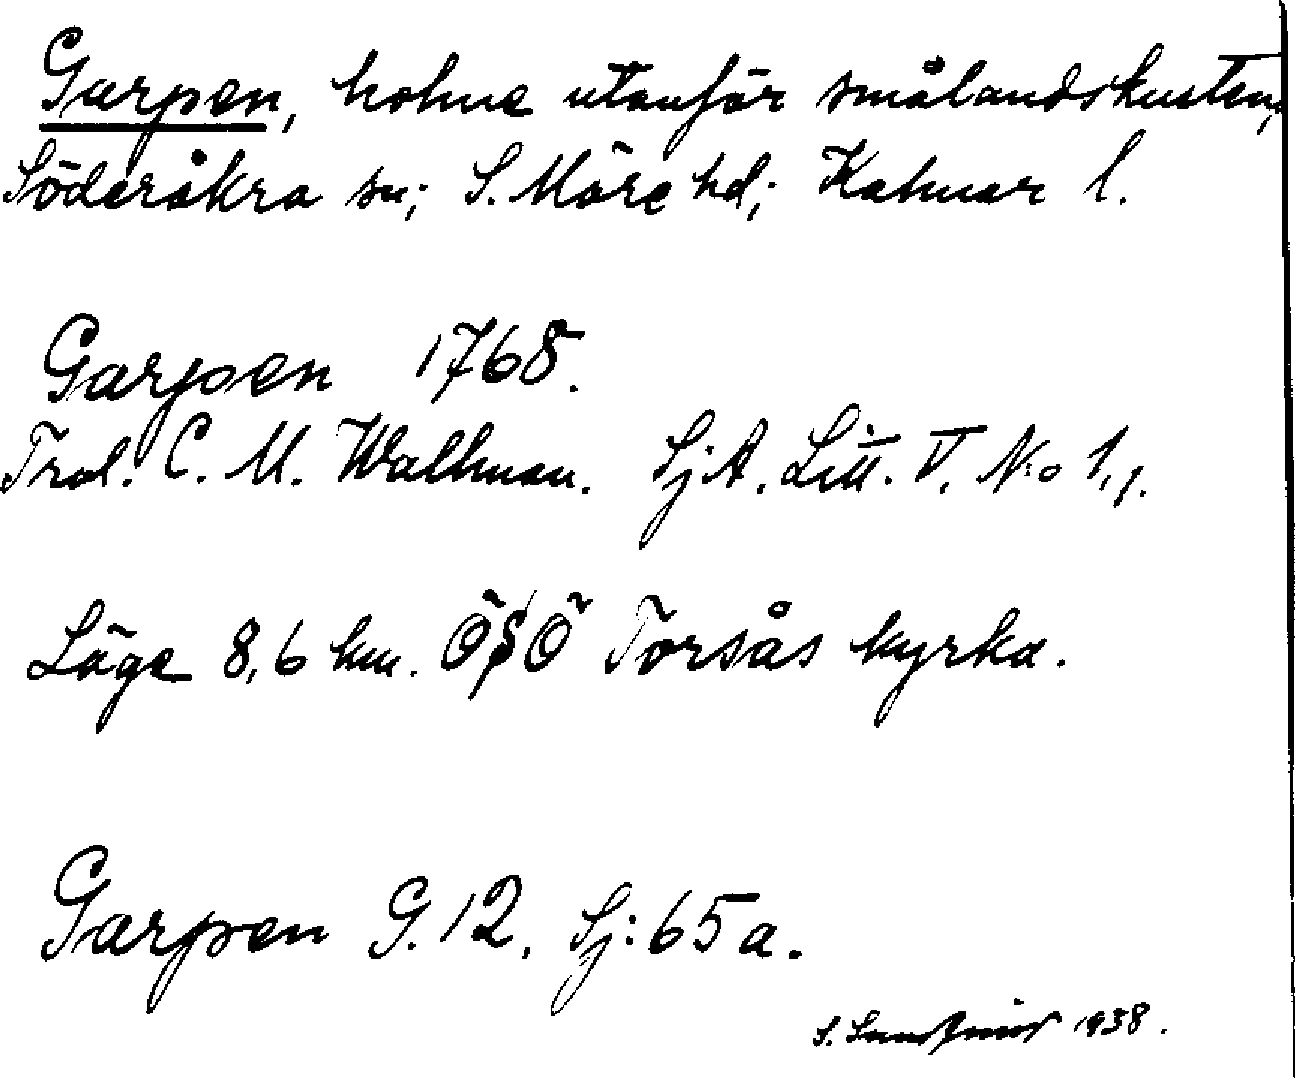 Garpen, holme utanför smålandskusten,
Söderåkra sn; S. Möre hd; Kalmar l.
Garpen 1768.
Trol. C. M. Wallman. SjA. Litt. V. No 1, 1.
Läge 8,6 km. ÖSÖ Torsås kyrka.
Garpen G. 12, Sj: 65 a.
S. 1938.